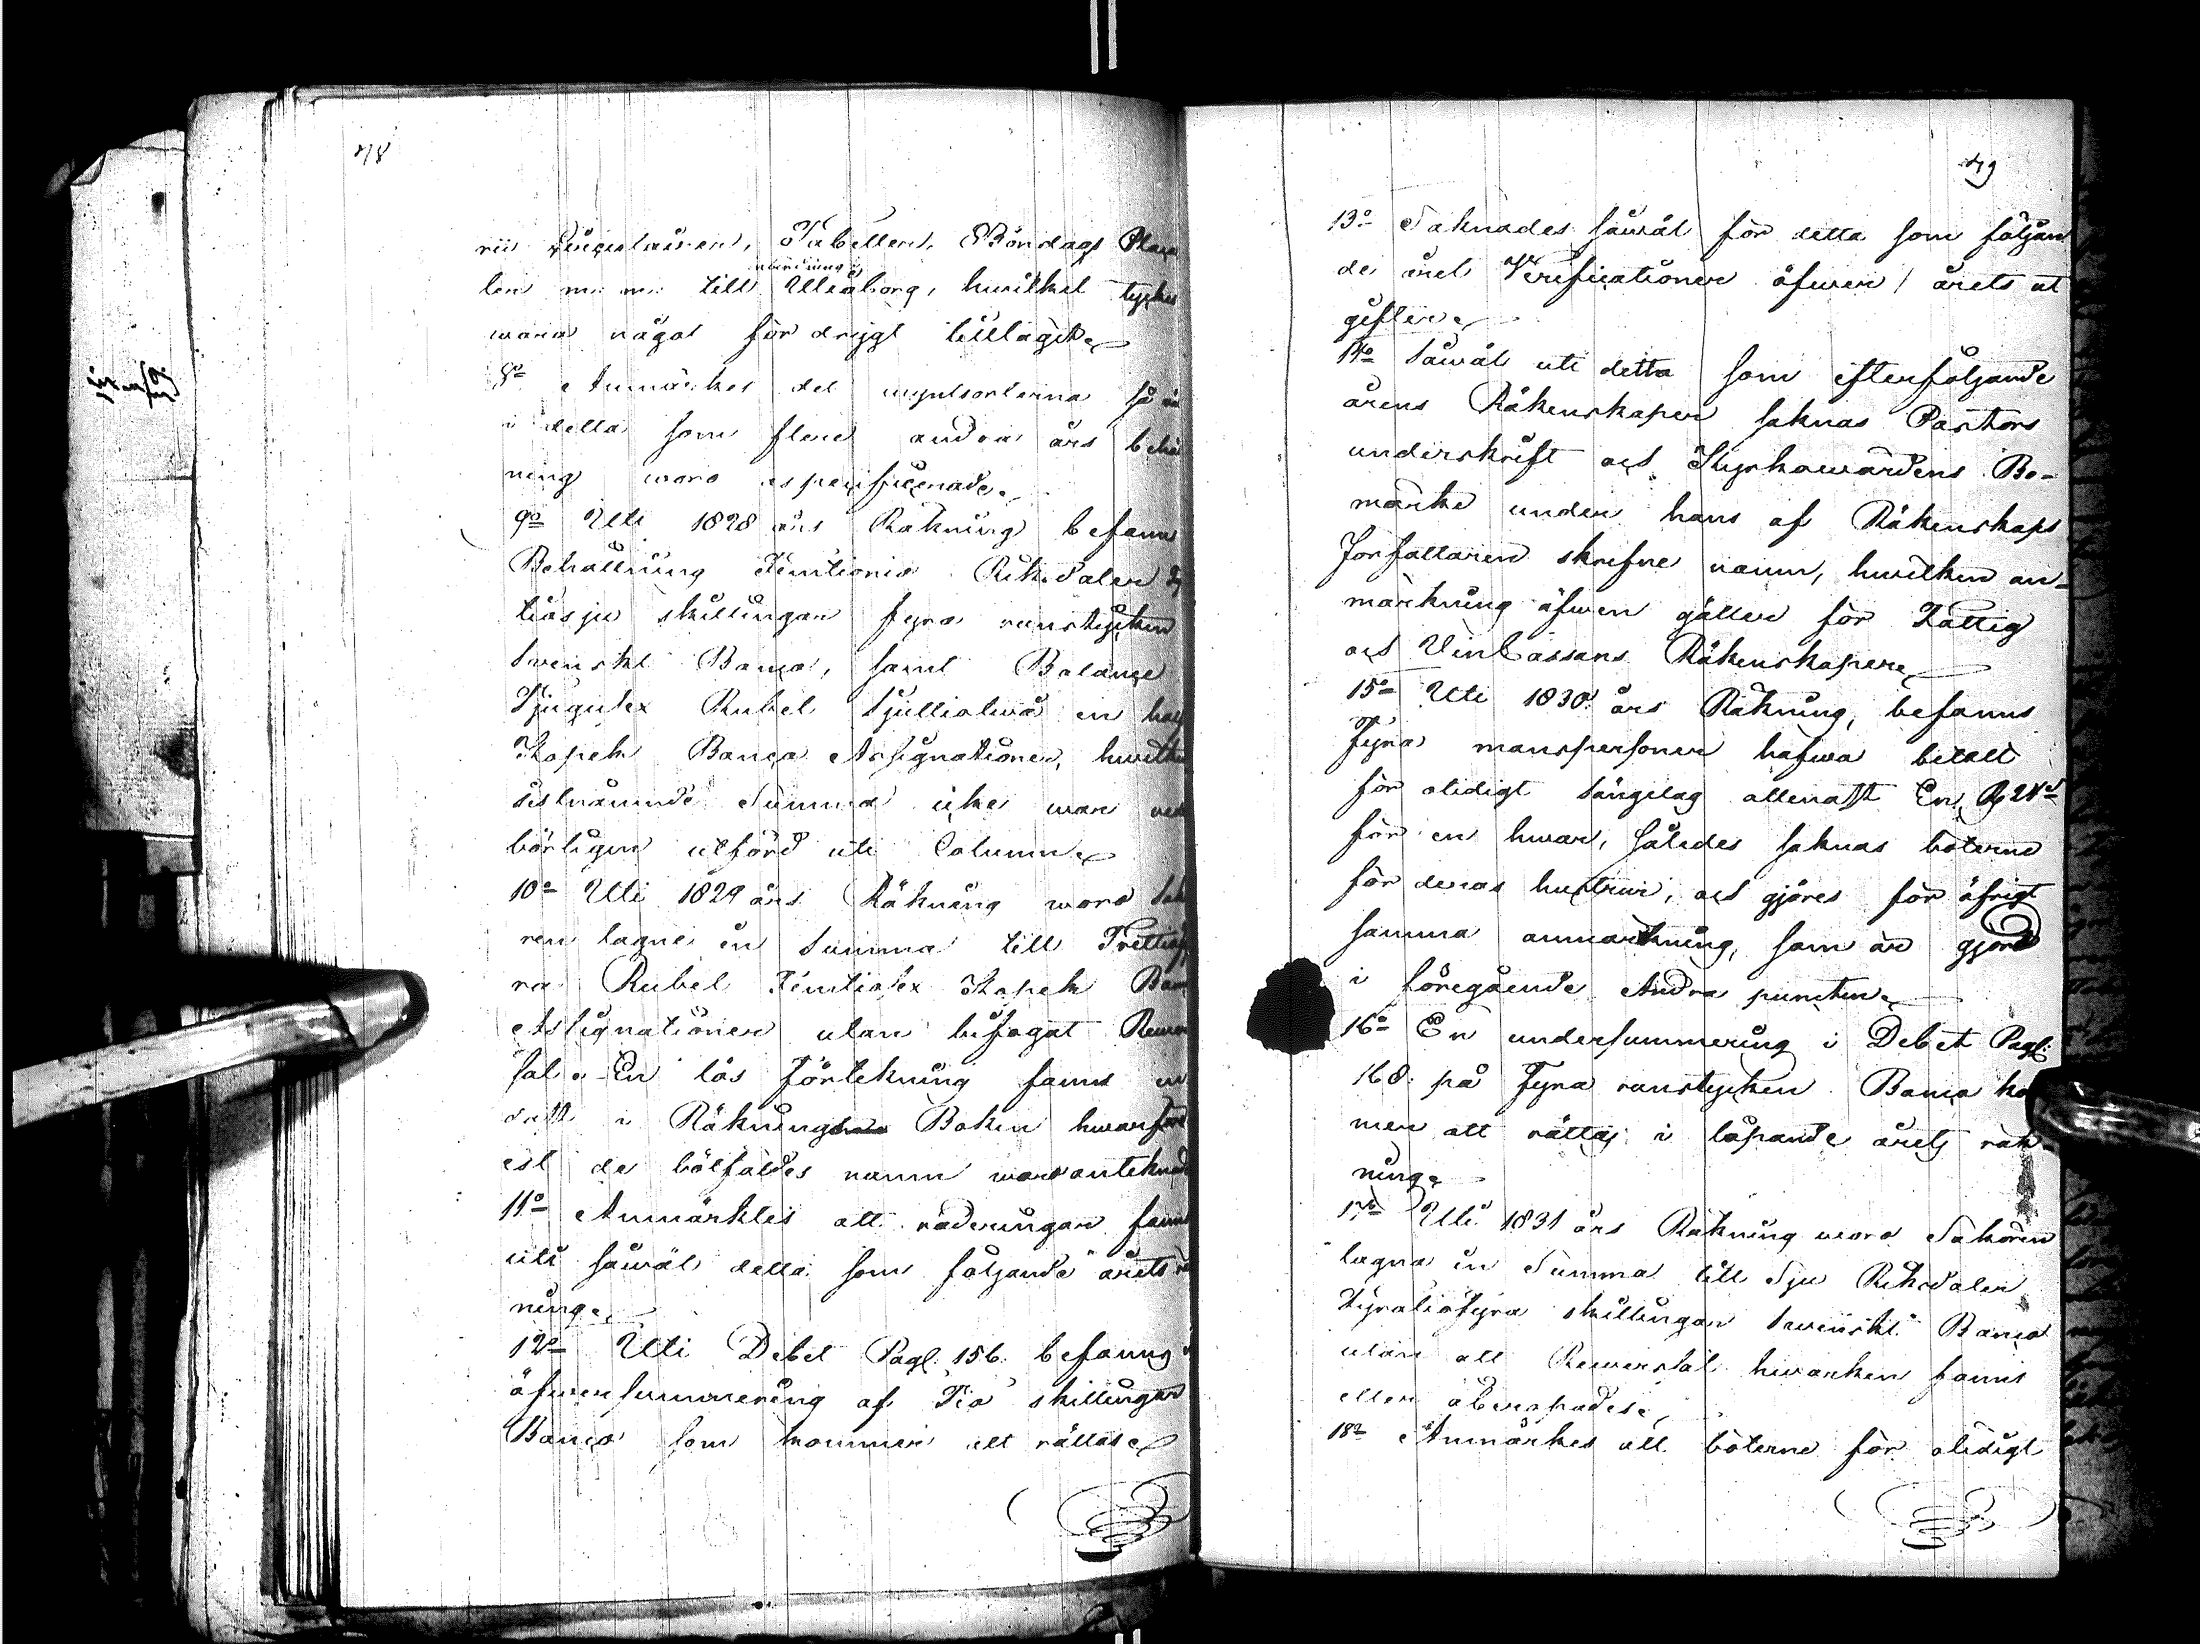 48
rii Circulairer, Tabeller, Böndags Placa
ter m: m: till Uleåborg, hwilket tyckes
insändning
wara något för drygt tilltaget.
8o Anmärktes det myntsorterna så wäl
i detta som flere andra års behåll
ning woro ospecificerade.
9o Uti 1828 års Räkning befanns
Behållning Femtionio Riksdaler
tiosju skillingar fyra runstycken
Svenskt Banco, samt Balance
Tjugusex Rubel Sjuttiotwå en half
Kopek Banco Assignationer, hwilken
sistnämnde Summa icke war ved
börligen utförd uti Column.
10o Uti 1829 års Räkning woro Sak
ren tagne i en Summa till Trettiofy
ra Rubel Femtiosex Kopek Banco
Assignationer utan bifogat Rewer
sal. En lös Förtekning fanns en
dast i Räknings Boken hwarför
est de bötfäldes namn woro anteknade
11o Anmärktes att råderingar fanns
uti såwäl detta som följande årets räk
ning.
12o Uti Debet Pag: 156. befanns
öfwersummering af Tio skillingar
Banco som kommer att rättas.
49
13o Saknades såwäl för detta som följan
de året Verificationer öfwer årets ut
gifter.
14o Såwäl uti detta som efterföljande
årens Räkenskaper saknas Pastors
underskrift och Kyrkowärdens Bo-
märke under hans af Räkenskaps
Författaren skrifne namn, hwilken an-
märkning äfwen gäller för Fattig
och VinCassans Räkenskaper.
15o Uti 1830 års Räkning, befanns
Fyra manspersoner hafwa betalt
för otidigt sängelag allenast En R 24 s
för en hwar, således saknas böterne
för deras hustrur, och gjöres för öfrigt
samma anmärkning, som är gjord
i föregående Andra puncten.
16o En undersummering i Debet Pag:
168. på Fyra runstycken Banco kom
mer att rättas i löpande årets räk-
ning.
17o Uti 1831 års Räkning woro Sakören
tagna i en Summa till Sju Riksdaler
Fyratiofyra skillingar Swenskt Banco
utan att Rewersal hwarken fanns
eller åberopades.
18o Anmärktes att böterne för otidigt